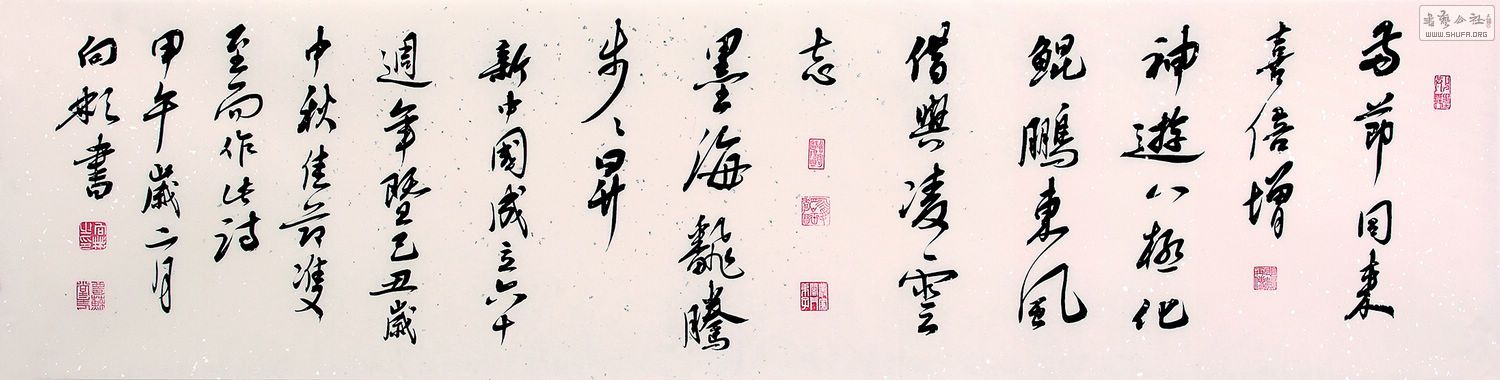 節同來
喜倍增
神遊八極化
鯤鵬東風
借與凌雲
志
墨海飜騰
步々昇
新中國成立六十
週年暨己丑歲
中秋佳節雙
至而作此詩
甲午歲二月
向彬書
書藝公社
WWW.SHUFA.ORG